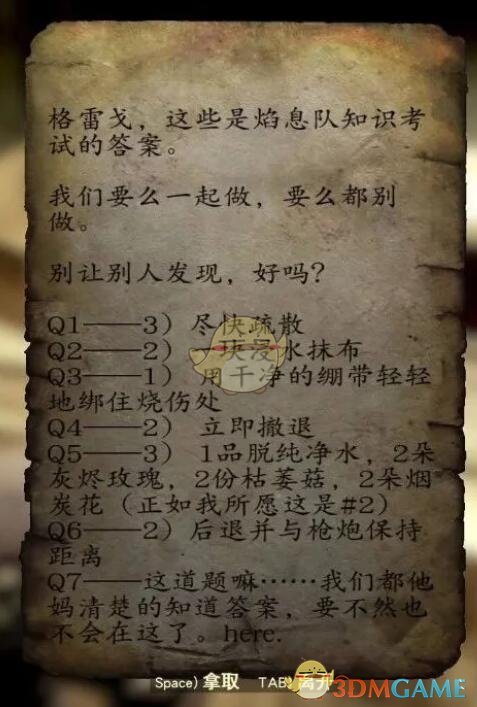 格雷戈，这些是焰息队知识考
试的答案。
我们要么一起做，要么都别
做。
别让别人发现，好吗？
Q1——3）尽快疏散
Q2——2）一块浸水抹布
Q3——1）用干净的绷带轻轻
地绑住烧伤处
Q4——2） 立即撤退
Q5——3）1品脱纯净水，2朵
灰烬玫瑰，2份枯萎菇，2朵烟
炭花（正如我所愿这是#2）
Q6——2）后退并与枪炮保持
距离
Q7——这道题嘛……我们都他
妈清楚的知道答案，要不然也
不会在这了。here.
Space) 拿取 TAB) 离开
3DMGAME